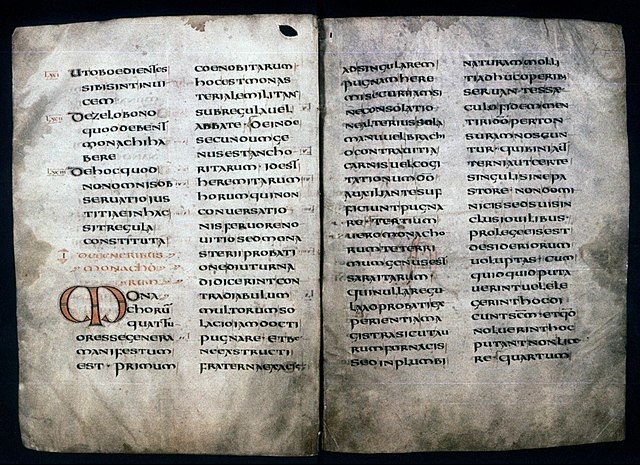 UTOBOEDIENTES
SIBISINTINUI
CEM
DEZELOBONO
QUODDEBENT
MONACHIHA
BERE
DEHOCQUOD
NONOMNISOB
SERUATIOIUS
TITIAEINHAC
SITREGULA
CONSTITUTA
I DEGENERIBUS
MONACHO
RUM
MONA
CHORŪ
QUATTU
ORESSEGENERA
MANIFESTUM
EST · PRIMUM
COENOBITARUM
HOCESTMONAS
TERIALEMILITAN
SUBREGULAUEL
ABBATE · DEINDE
SECUNDUMGE
NUSESTANCHO
RITARUM · IDEST
HEREMITARUM
HORUMQUINON
CONUERSATIO
NISFERUORENO
UITIOSEDMONA
STERIIPROBATI
ONEDIUTURNA
DIDICERINTCON
TRADIABULUM
MULTORUMSO
LACIOIAMDOCTI
PUGNARE · ETBE
NEEXSTRUCTI
FRATERNAEXACIE
ADSINGULAREM
PUGNAMHERE
MISECURIIAMSI
NECONSOLATIO
NEALTERIUSSOLA
MANUUELBRACHI
OCONTRAUITIA
CARNISUELCOGI
TATIONUMDŌ
AUXILIANTESUF
FICIUNTPUGNA
RE · TERTIUM
UEROMONACHO
RUMTETERRI
MUMGENUSEST
SARAITARUM
QUINULLAREGU
LAADPROBATIEX
PERIENTIAMA
GISTRASICUTAU
RUMFORNACIS
SEDINPLUMBI
NATURAMMOLLI
TIADHUCOPERIB
SERUANTESSAE
CULOFIDEMMEN
TIRIDŌPERTON
SURAMNOSCUN
TUR · QUIBINIAUT
TERNIAUTCERTE
SINGULISINEPA
STORE · NONDOMI
NICISSEDSUISIN
CLUSIOUILIBUS ·
PROLEGEEISEST
DESIDERIORUM
UOLUPTAS · CUM
QUIDQUIDPUTA
UERINTUELELE
GERINTHOCDI
CUNTSCMETQD
NOLUERINTHOC
PUTANTNONLICE
RE · QUARTUM